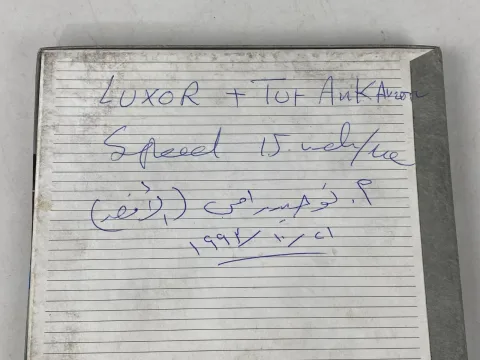 LUXOR + Tut Ankh Amon
Speed 15 inch/sec
م. توحيد رامى (الأقصر)
١٩٩٢/١٠/٢١